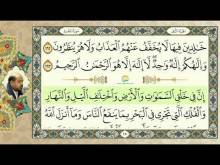 خَٰلِدِينَ فِيهَا لَا يُخَفَّفُ عَنْهُمُ ٱلْعَذَابُ وَلَا هُمْ يُنظَرُونَ
وَإِلَٰهُكُمْ إِلَٰهٌ وَٰحِدٌ لَّآ إِلَٰهَ إِلَّا هُوَ ٱلرَّحْمَٰنُ ٱلرَّحِيمُ
إِنَّ فِى خَلْقِ ٱلسَّمَٰوَٰتِ وَٱلْأَرْضِ وَٱخْتِلَٰفِ ٱلَّيْلِ وَٱلنَّهَارِ
وَٱلْفُلْكِ ٱلَّتِى تَجْرِى فِى ٱلْبَحْرِ بِمَا يَنفَعُ ٱلنَّاسَ وَمَآ أَنزَلَ ٱللَّهُ